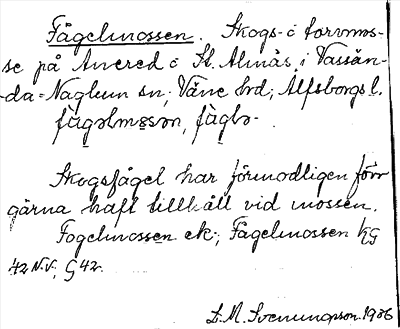 Fågelmossen. Skogs- o torvmos-
se på Anered o St. Almås i Vassän-
da-Naglum sn, Väne hd, Älfsborgs l.
fågəlmɔsən, fågbə-
Skogsfågel har förmodligen förr
gärna haft tillhåll vid mossen.
Fogelmossen ek; Fågelmossen KG
42 N.V., G 42.
D. M. Svenungsson. 1926